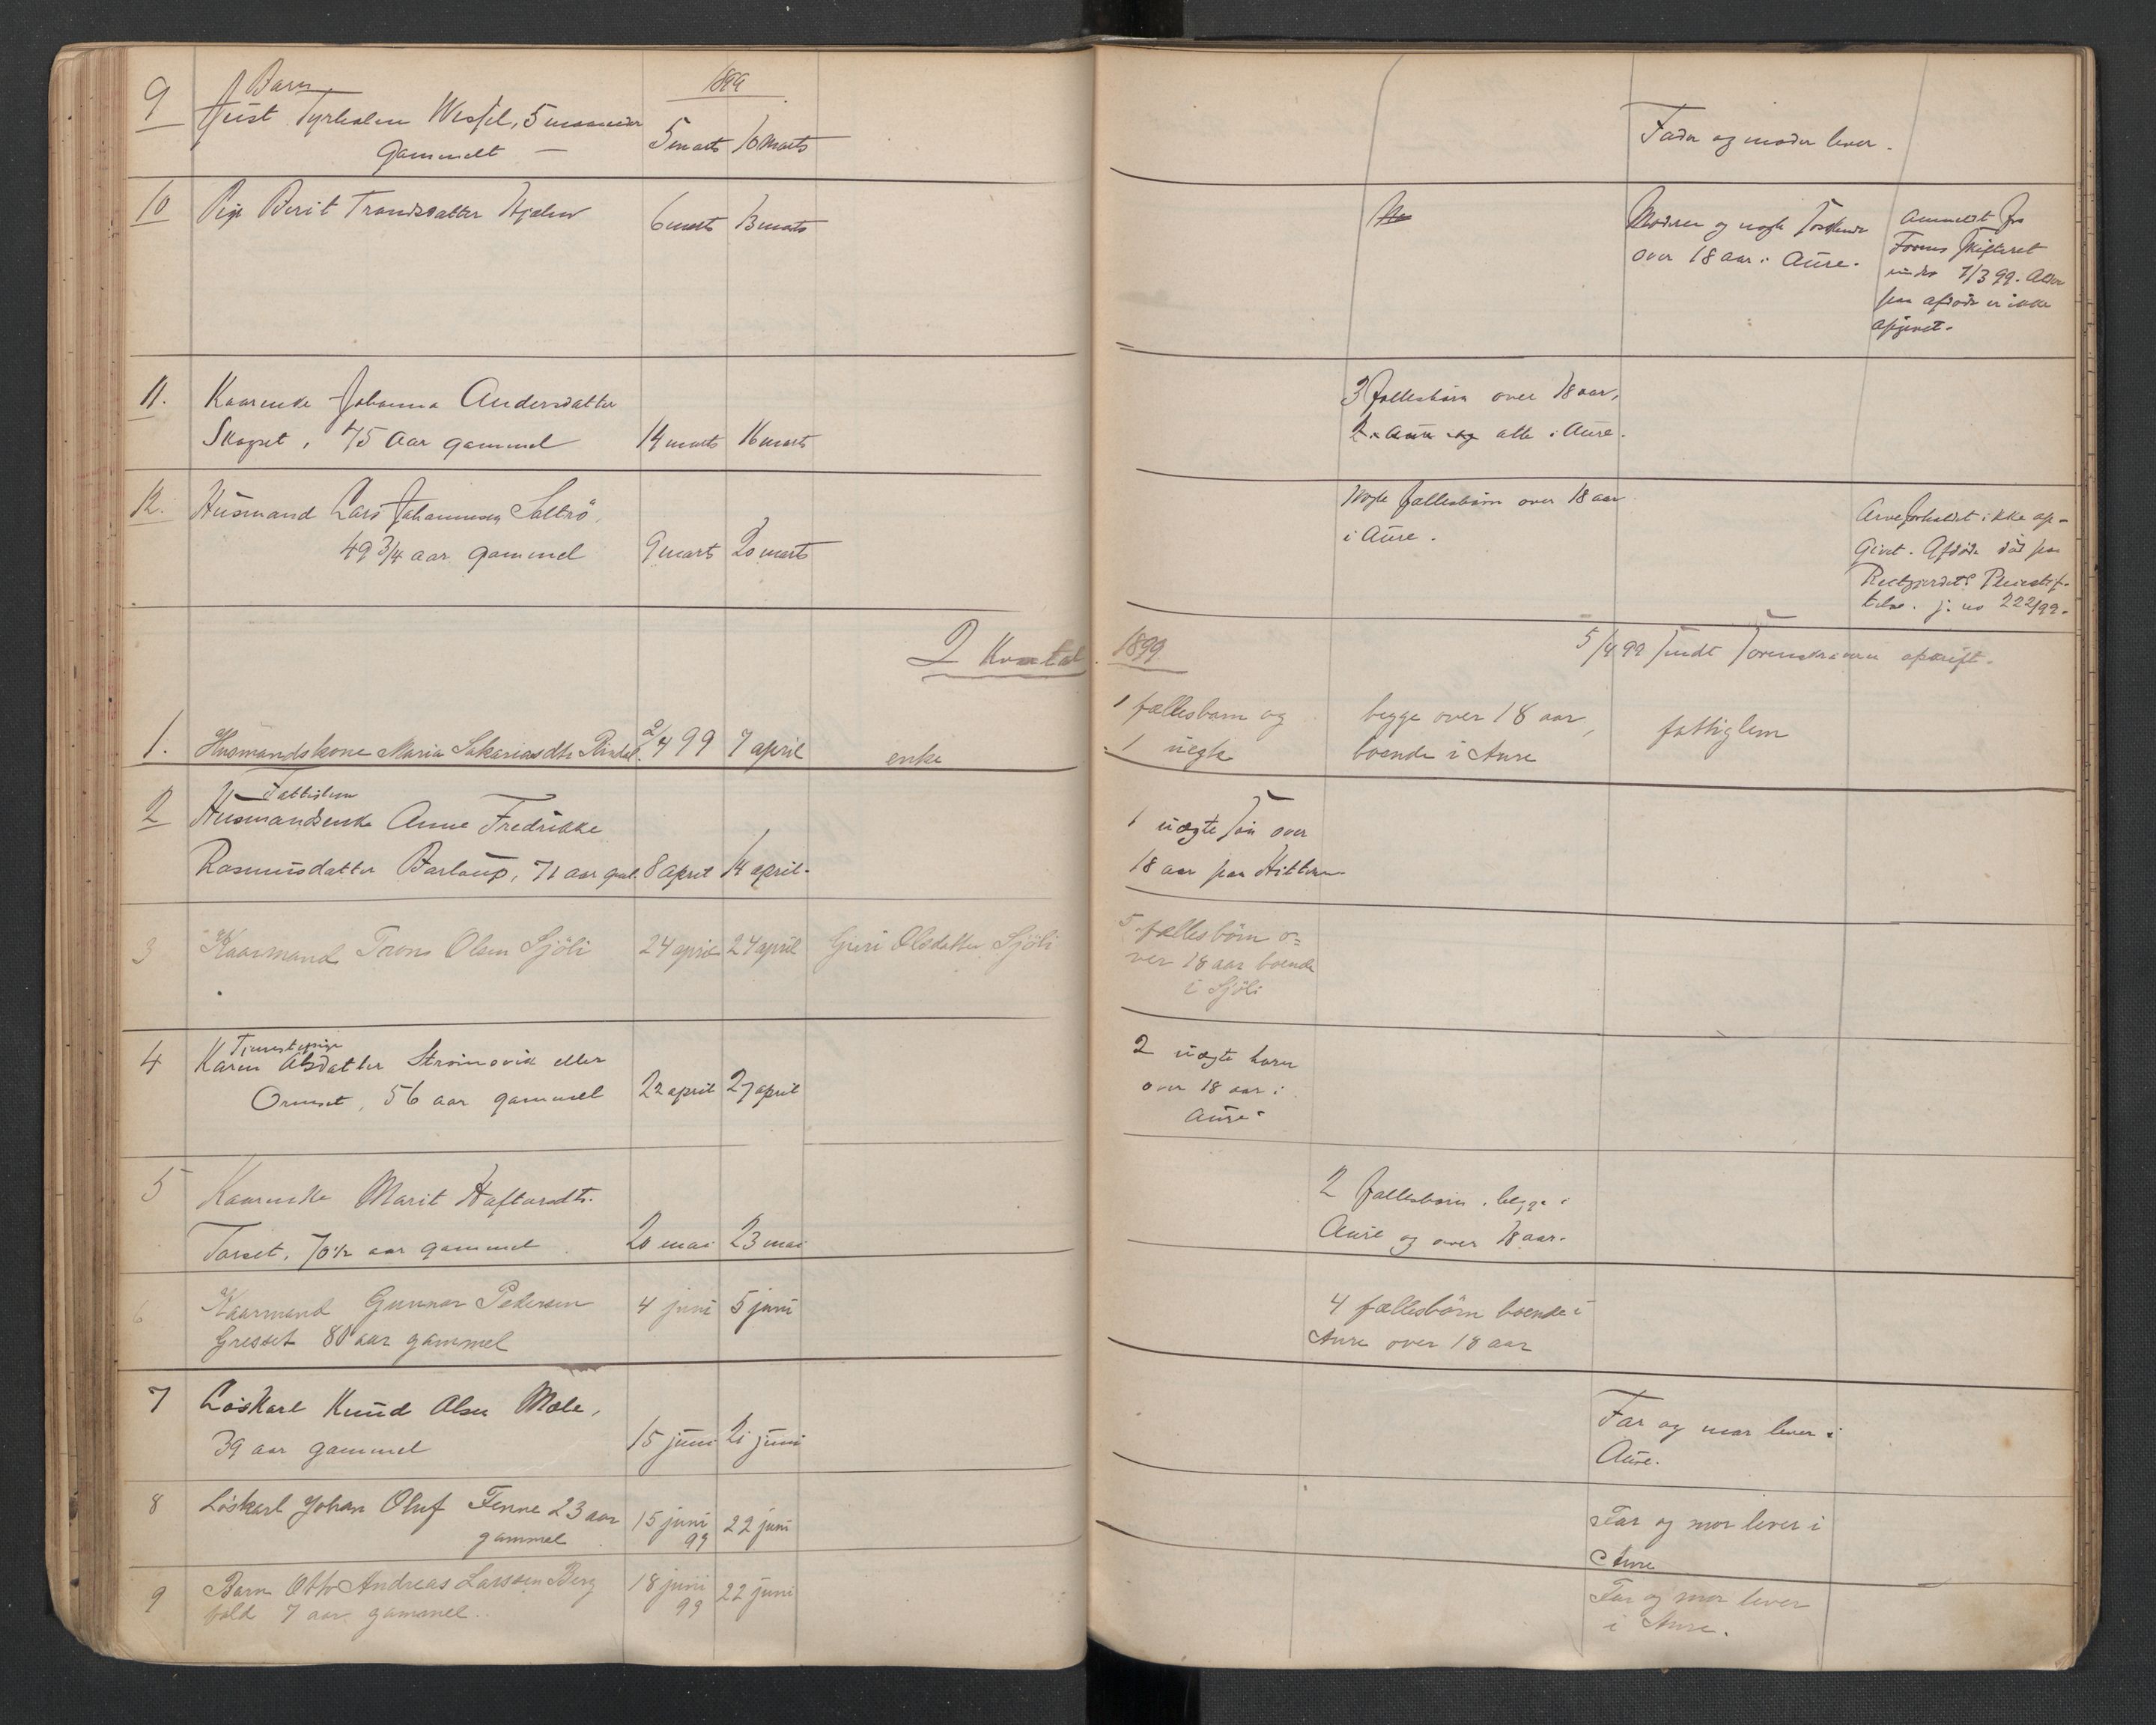 1899
9 Barn
Just Tyrholm Wessel, 5 maaneder
gammelt — 5 marts 10 marts
Fader og moder lever.
10 Pige Berit Trondsdatter Hjelm 6 marts 13 marts
Moderen og nogle Söskende
over 18 aar i Aure.
Anmeldt fra
Fosnes Skifteret
under 7/3 99. Alder
paa afdøde er ikke
opgivet.
11. Kaarenke Johanna Andersdatter
Skogset, 75 aar gammel 14 marts 16 marts
3 fællesbørn over 18 aar,
2 i Aure og alle i Aure.
12. Husmand Lars Johannesen Saltrö
49 3/4 aar gammel 9 marts 20 marts
Nogle fællesbørn over 18 aar
i Aure.
Arveforholdet ikke op-
givet. Afdøde død paa
Reitgjerdets Pleiestif-
telse. j. no 222/99.
2 Kvartal 1899
5/4 99 sendt Sorenskriveren afskrift.
1. Husmandskone Maria Sakariasdtr Rindal. 2/4 99 7 april enke
1 fællesbarn og
1 uegte
begge over 18 aar,
boende i Aure
fattiglem
2 Fattiglem
Husmandsenke Anne Fredrikke
Rasmusdatter Barlaup, 71 aar gml. 8 april 14 april.
1 uægte Søn over
18 aar paa Hitteren
3 Kaarmand Trons Olsen Sjöli 24 april 24 april Guri Olsdatter Sjöli
5 fællesbörn o=
ver 18 aar boende
i Sjöli
4 Tjenestepige
Karen Olsdatter Strömsvik eller
Ormset, 56 aar gammel 22 april 27 april
2 uægte barn
over 18 aar i
Aure.
5 Kaarenke Marit Haftorsdtr.
Torset, 70 1/2 aar gammel 20 mai 23 mai
2 fællesbørn, begge i
Aure og over 18 aar.
6 Kaarmand Gunnar Pedersen
Gresset 80 aar gammel 4 juni 5 juni
4 fællesbörn boende i
Aure over 18 aar
7 Løskarl Knud Olsen Mæle,
39 aar gammel 15 juni 21 juni
Far og mor lever i
Aure.
8 Löskarl Johan Oluf Tenne 23 aar
gammel 15 juni 99 22 juni
Far og mor lever i
Aure
9 Barn Otto Andreas Larssen Berg
fald 7 aar gammel. 18 juni 99 22 juni
Far og mor lever
i Aure.